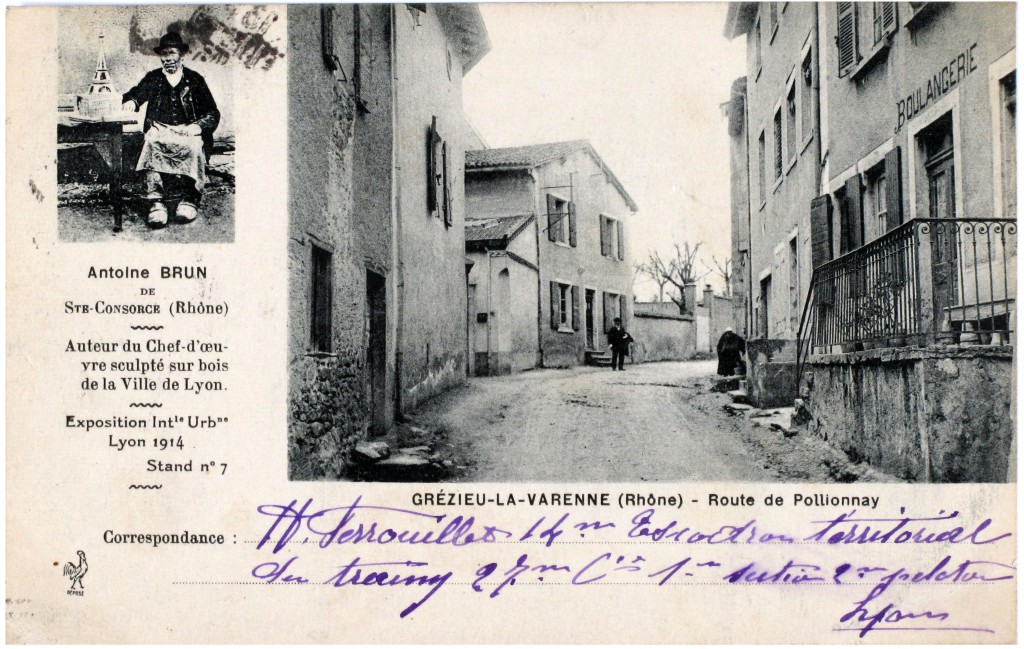 Antoine BRUN
DE
STE-CONSORCE (Rhône)
Auteur du Chef-d'œu-
vre sculpté sur bois
de la Ville de Lyon.
Exposition Intle Urbne
Lyon 1914
Stand n° 7
BOULANGERIE
GRÉZIEU-LA-VARENNE (Rhône) - Route de Pollionnay
Correspondance : H. Perrouillet 14me Escadron territorial
du train 27me Cie 1re section 2me peloton
Lyon
DÉPOSÉ